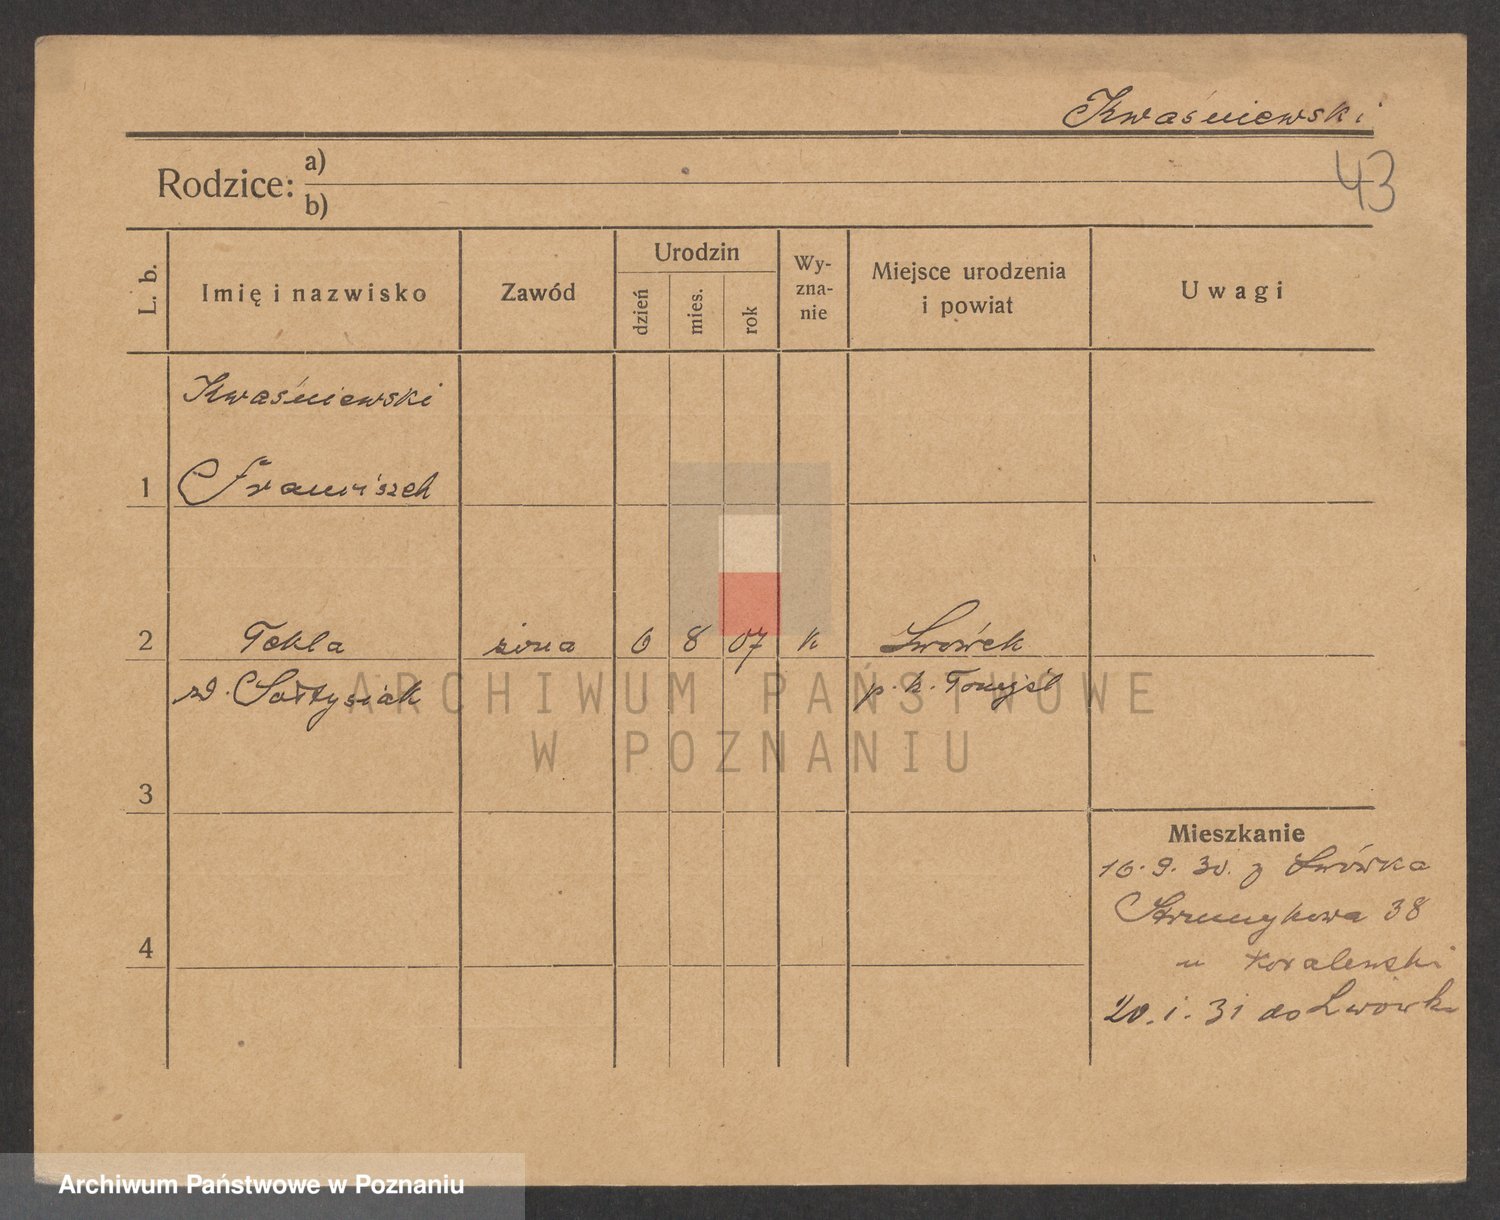 Kwaśniewski
Rodzice: a)
b)
43
L. b.
Imię i nazwisko
Zawód
Urodzin
dzień
mies.
rok
Wy-
zna-
nie
Miejsce urodzenia
i powiat
Uwagi
Kwaśniewski
1 Franciszek
2 Tekla żona 6 8 07 k Lwówek
zd. Sołtysiak p. n. Tomyśl
ARCHIWUM PAŃSTWOWE
W POZNANIU
3
Mieszkanie
16.9.30. z Lwówka
Strumykowa 38
u Kowalewski
4
20.1.31 do Lwówka
Archiwum Państwowe w Poznaniu